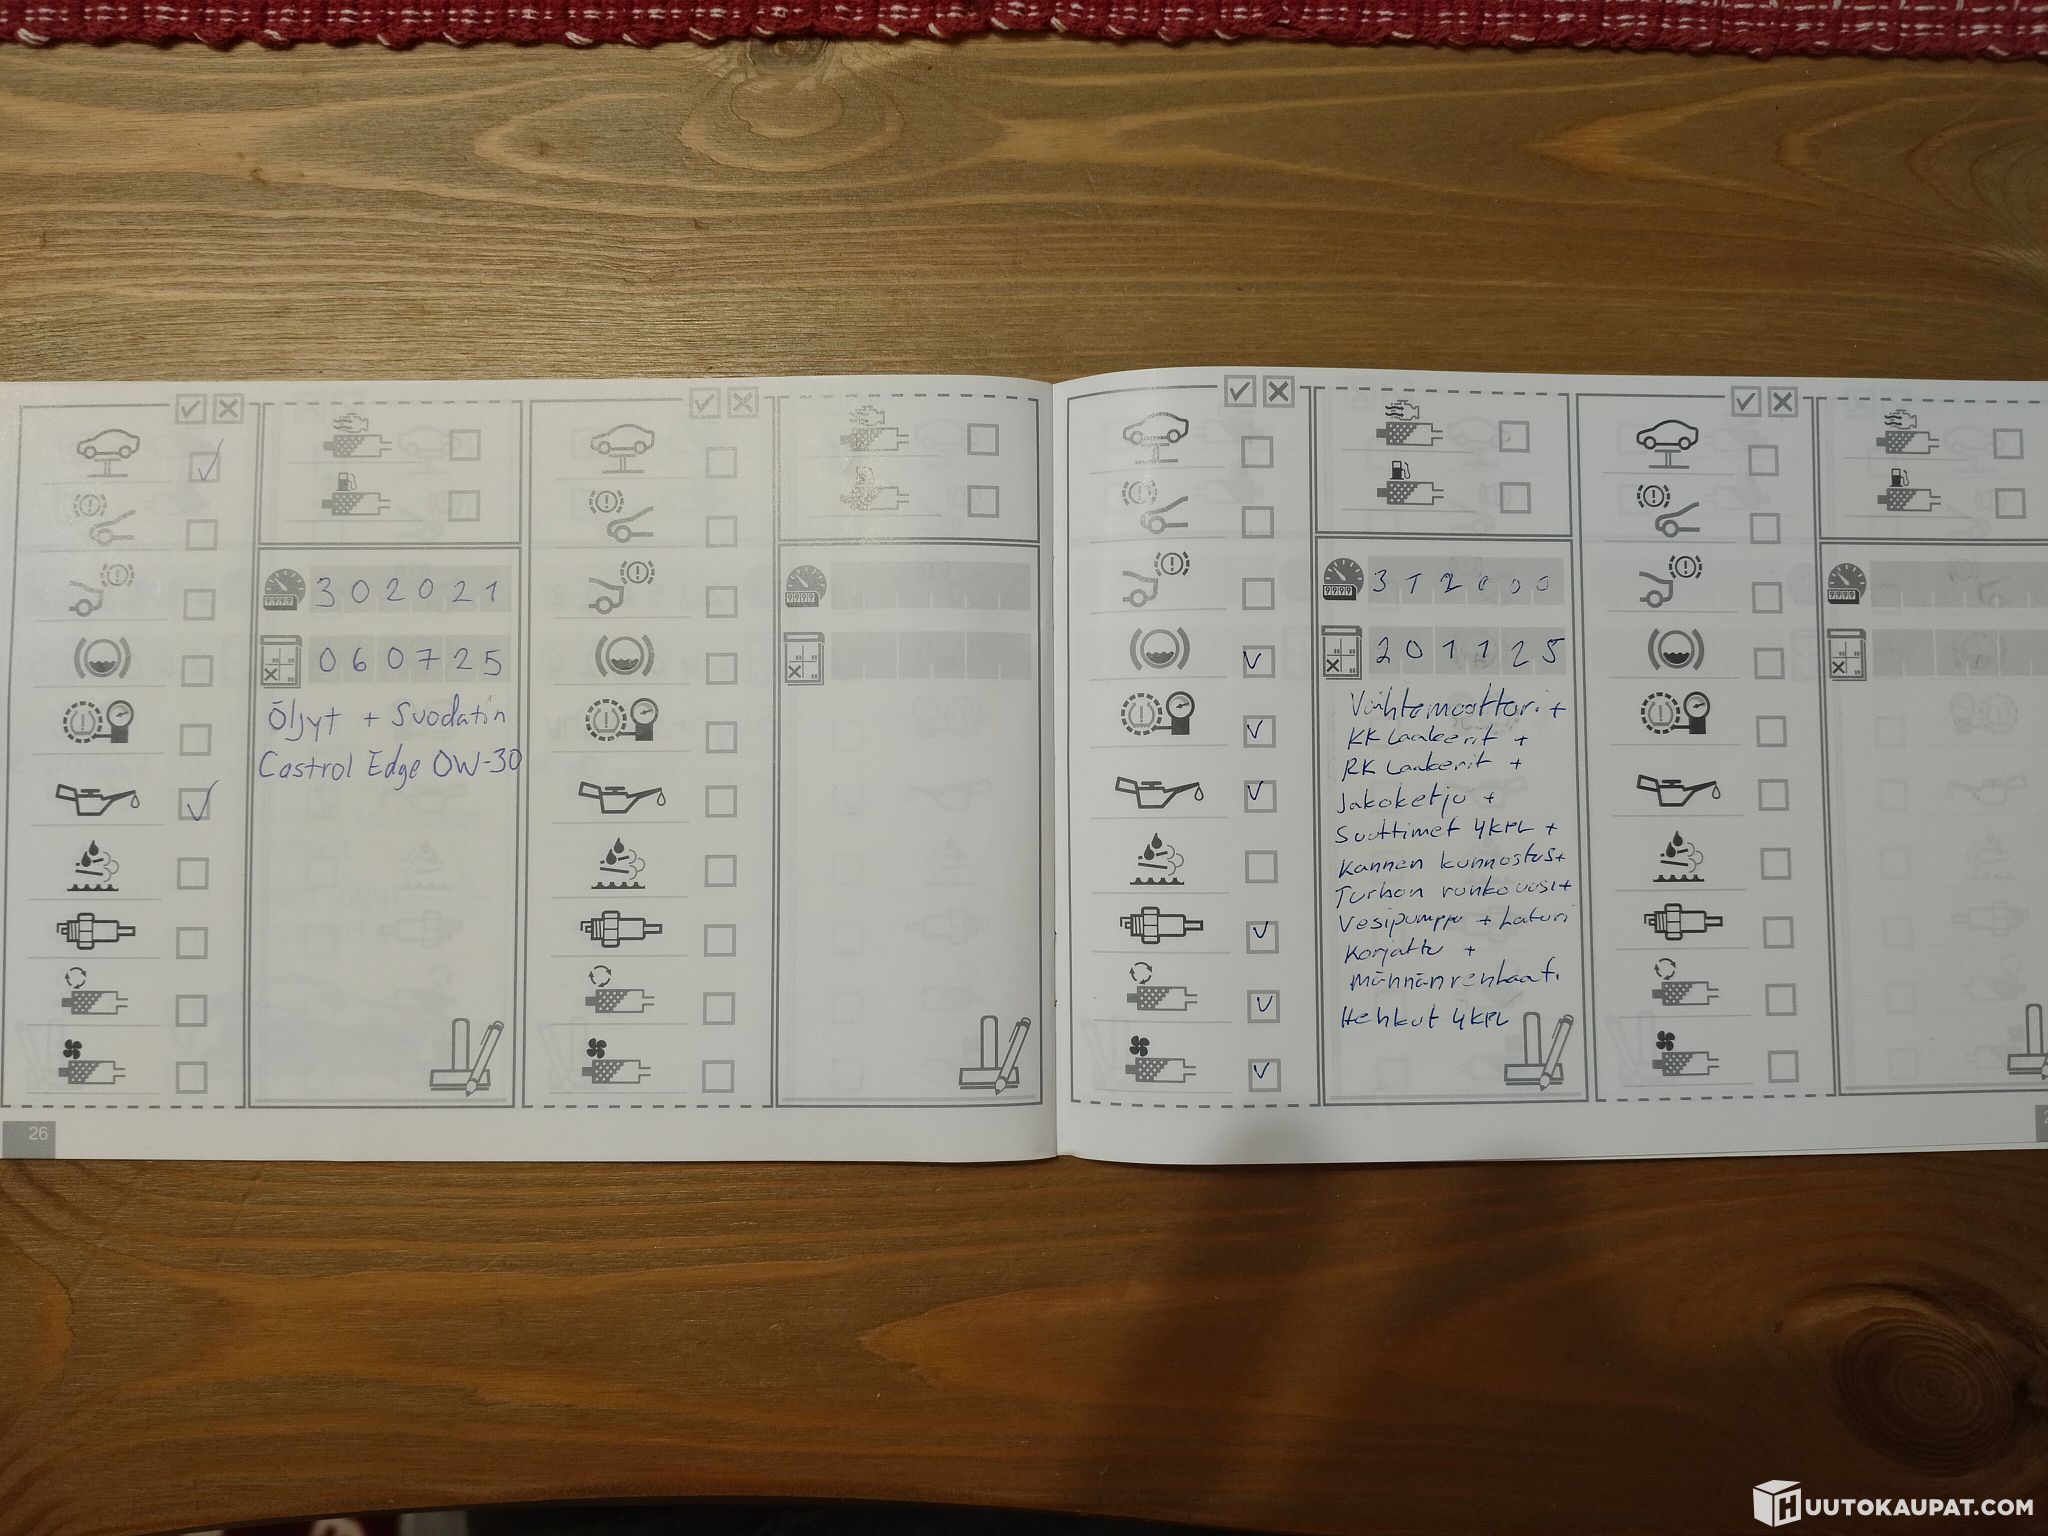 302021
060725
Öljyt + Suodatin
Castrol Edge 0W-30
26
312000
201125
Vaihtomoottori +
KK Laakerit +
RK Laakerit +
Jakoketju +
Suuttimet 4KPL +
Kannen kunnostus+
Turbon runko uusi+
Vesipumppu + Laturi
Korjattu +
männänrenkaat.
Hehkut 4KPL
HUUTOKAUPAT.COM